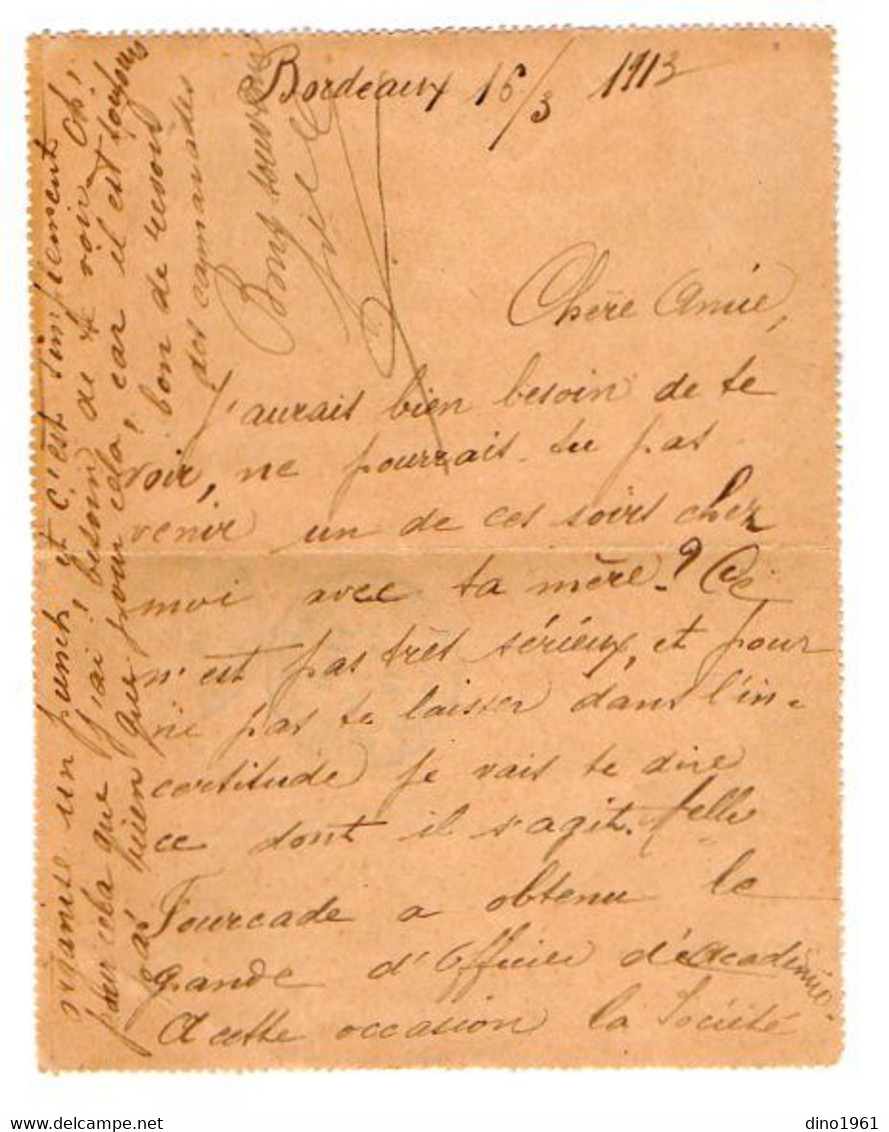 Bordeaux 16/3 1913
Chère Amie,
J'aurais bien besoin de te
voir, ne pourrais-tu pas
venir un de ces soirs chez
moi avec ta mère? Ce
n'est pas très sérieux, et pour
ne pas te laisser dans l'in-
certitude je vais te dire
ce dont il s'agit. Melle
Fourcade a obtenu le
grande d'Officier d'Académie.
A cette occasion la Société
organise un punch et c'est simplement
pour cela que j'ai besoin de te voir. Oh!
pas rien que pour cela, car il est toujours
bon de revoir
des camarades
Bons souvenirs
dino1961